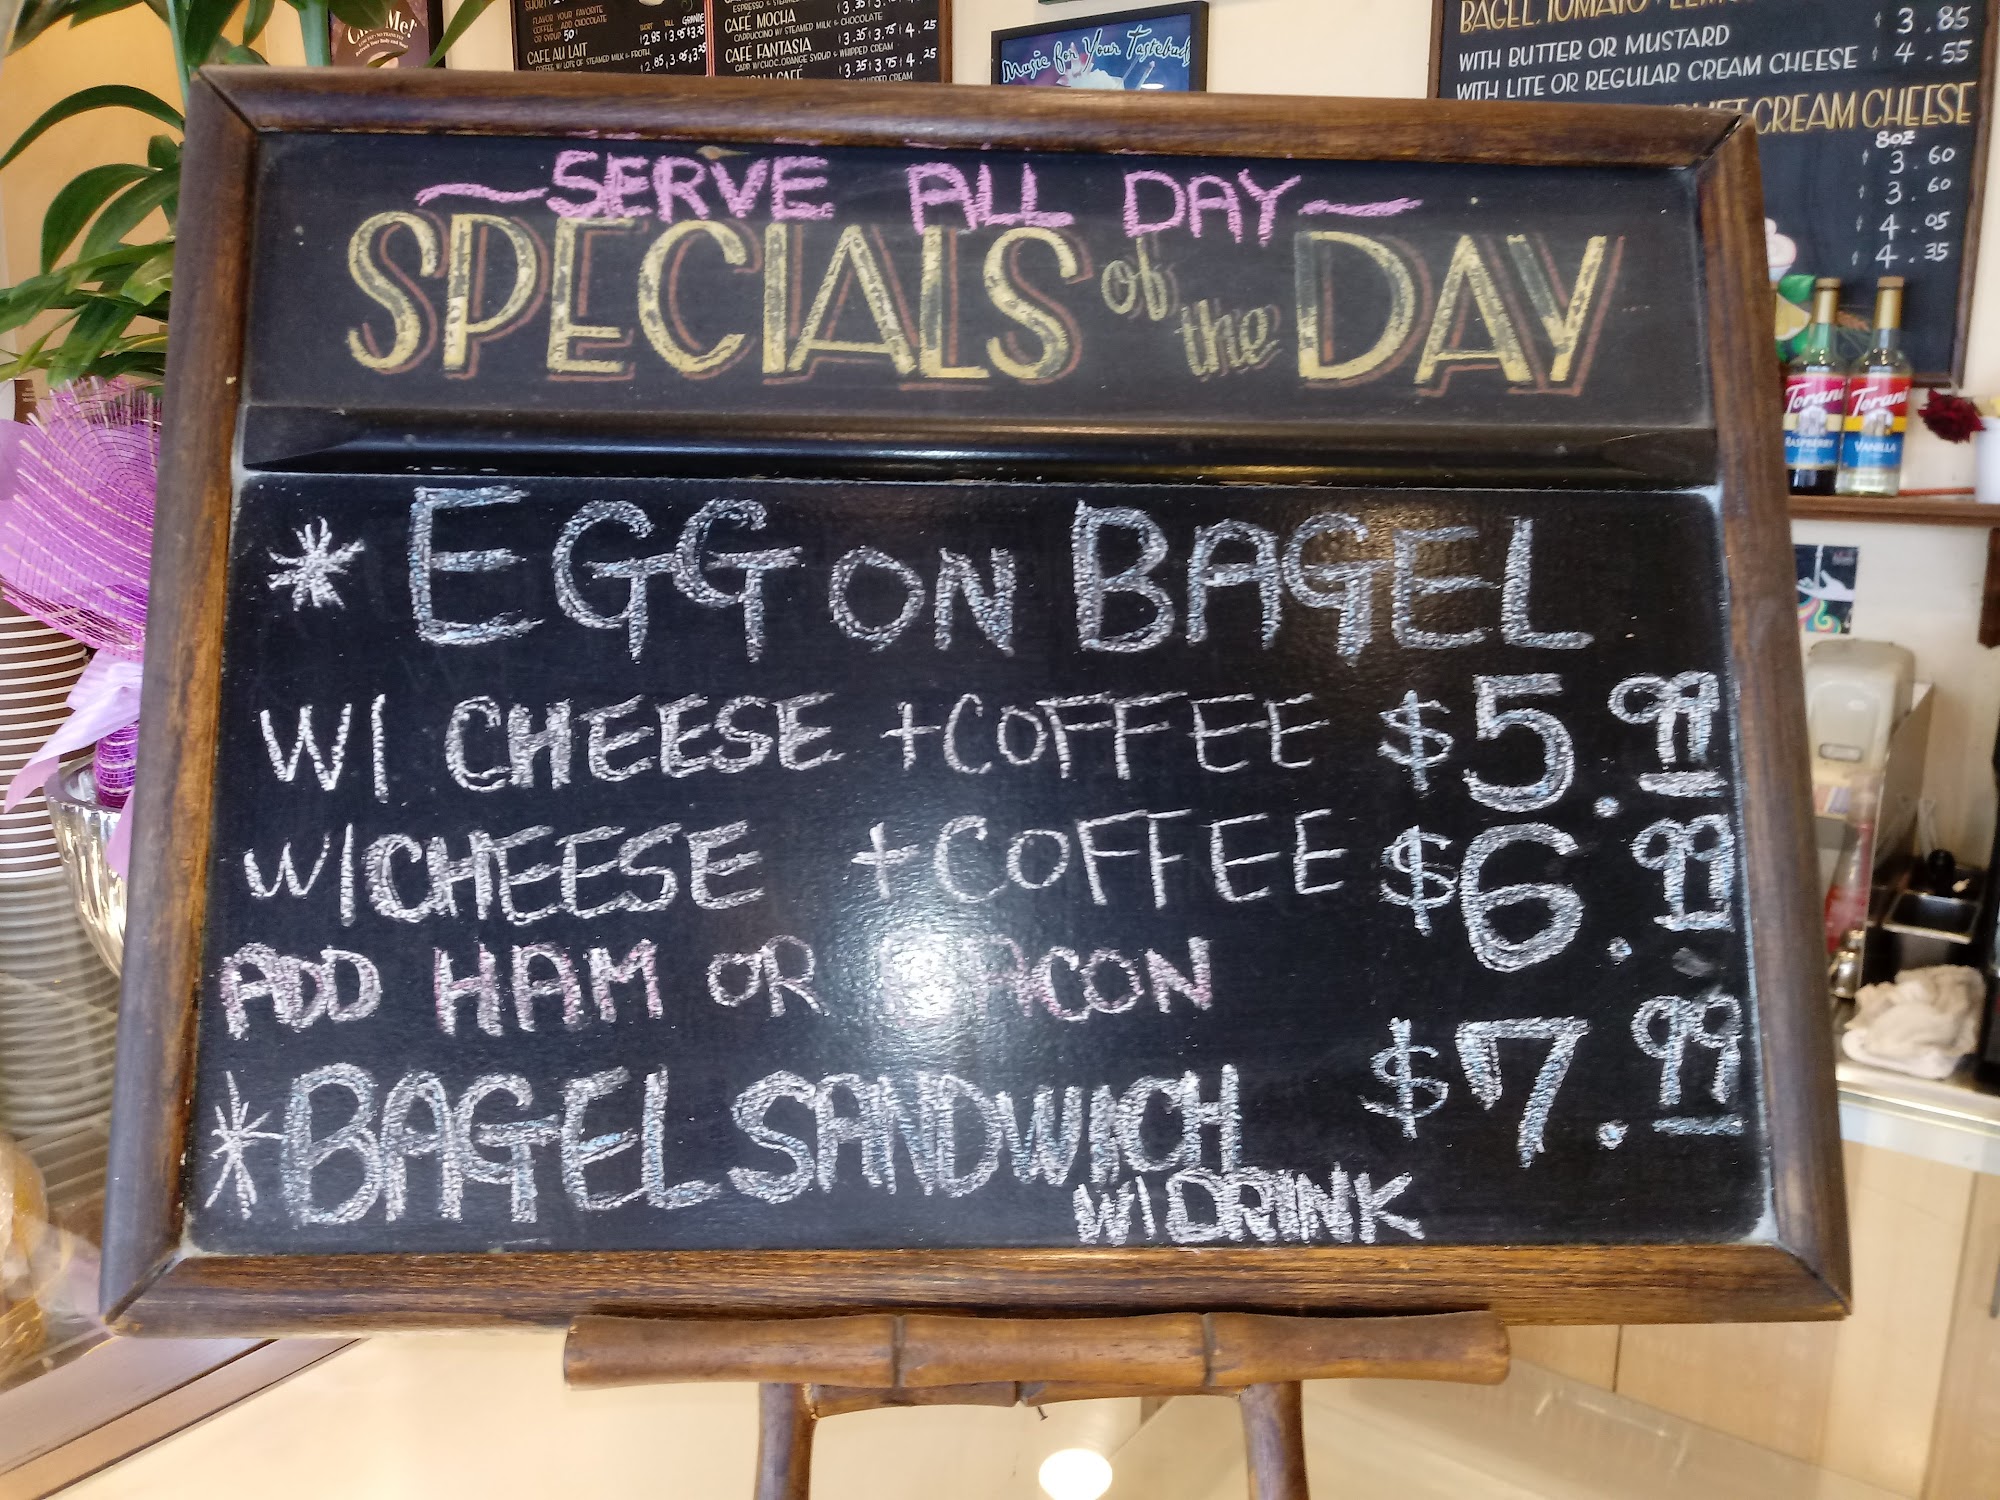 FLAVOR YOUR FAVORITE
COFFEE ADD CHOCOLATE
OR SYRUP 50¢
SHORT TALL GRANDE
CAFE AU LAIT
$2.85 $3.05 $3.25
CAFÉ MOCHA
CAPPUCCINO W/ STEAMED MILK & CHOCOLATE
$3.35 $3.75 $4.25
CAFÉ FANTASIA
CAPP. W/CHOC. ORANGE SYRUP & WHIPPED CREAM
$3.35 $3.75 $4.25
Music for Your Tastebuds
BAGEL, TOMATO
WITH BUTTER OR MUSTARD $3.85
WITH LITE OR REGULAR CREAM CHEESE $4.55
CREAM CHEESE
8OZ
$3.60
$3.60
$4.05
$4.35
Torani
RASPBERRY
Torani
VANILLA
~SERVE ALL DAY~
SPECIALS of the DAY
* EGG ON BAGEL
W/ CHEESE + COFFEE $5.99
W/ CHEESE + COFFEE $6.99
ADD HAM OR BACON
* BAGEL SANDWICH $7.99
W/ DRINK